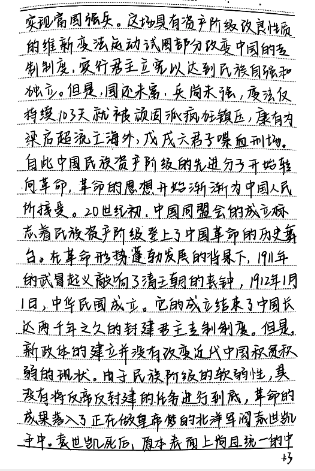 实现富国强兵。这场具有资产阶级改良性质
的维新变法运动试图部分改变中国的专
制制度，实行君主立宪以达到民族自强和
独立。但是，国还未富，兵尚未强，变法仅
持续103天就被顽固派疯狂镇压，康有为
梁启超流亡海外，戊戌六君子喋血刑场。
自此中国民族资产阶级的先进分子开始转
向革命，革命的思想开始渐渐为中国人民
所接受。20世纪初，中国同盟会的成立标
志着民族资产阶级登上了中国革命的历史舞
台。在革命形势蓬勃发展的背景下，1911年
的武昌起义敲响了清王朝的丧钟，1912年1月
1日，中华民国成立。它的成立结束了中国长
达两千年之久的封建君主专制制度。但是，
新政体的建立并没有改变近代中国积贫积
弱的现状。由于民族阶级的软弱性，其
没有将反帝反封建的任务进行到底，革命的
成果落入了正在做皇帝梦的北洋军阀袁世凯
手中。袁世凯死后，原本表面上尚且统一的中